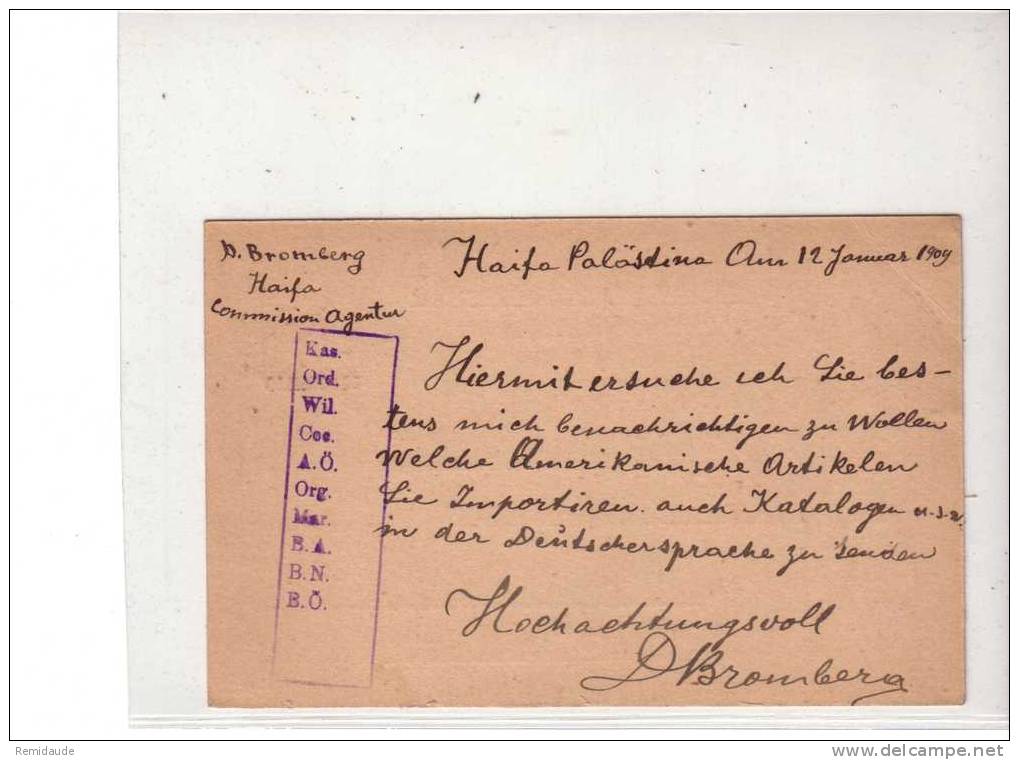 D. Bromberg
Haifa
Commission Agentur
Haifa Palästina Am 12 Januar 1909
Kas.
Ord.
Wil.
Coe.
A.Ö.
Org.
Mar.
B.A.
B.N.
B.Ö.
Hiermit ersuche ich Sie bes-
tens mich benachrichtigen zu Wollen
Welche Amerikanische Artikelen
Sie Importiren auch Katalogen u.s.w.
in der Deutschersprache zu senden
Hochachtungsvoll
D Bromberg
Remidaude
www.delcampe.net